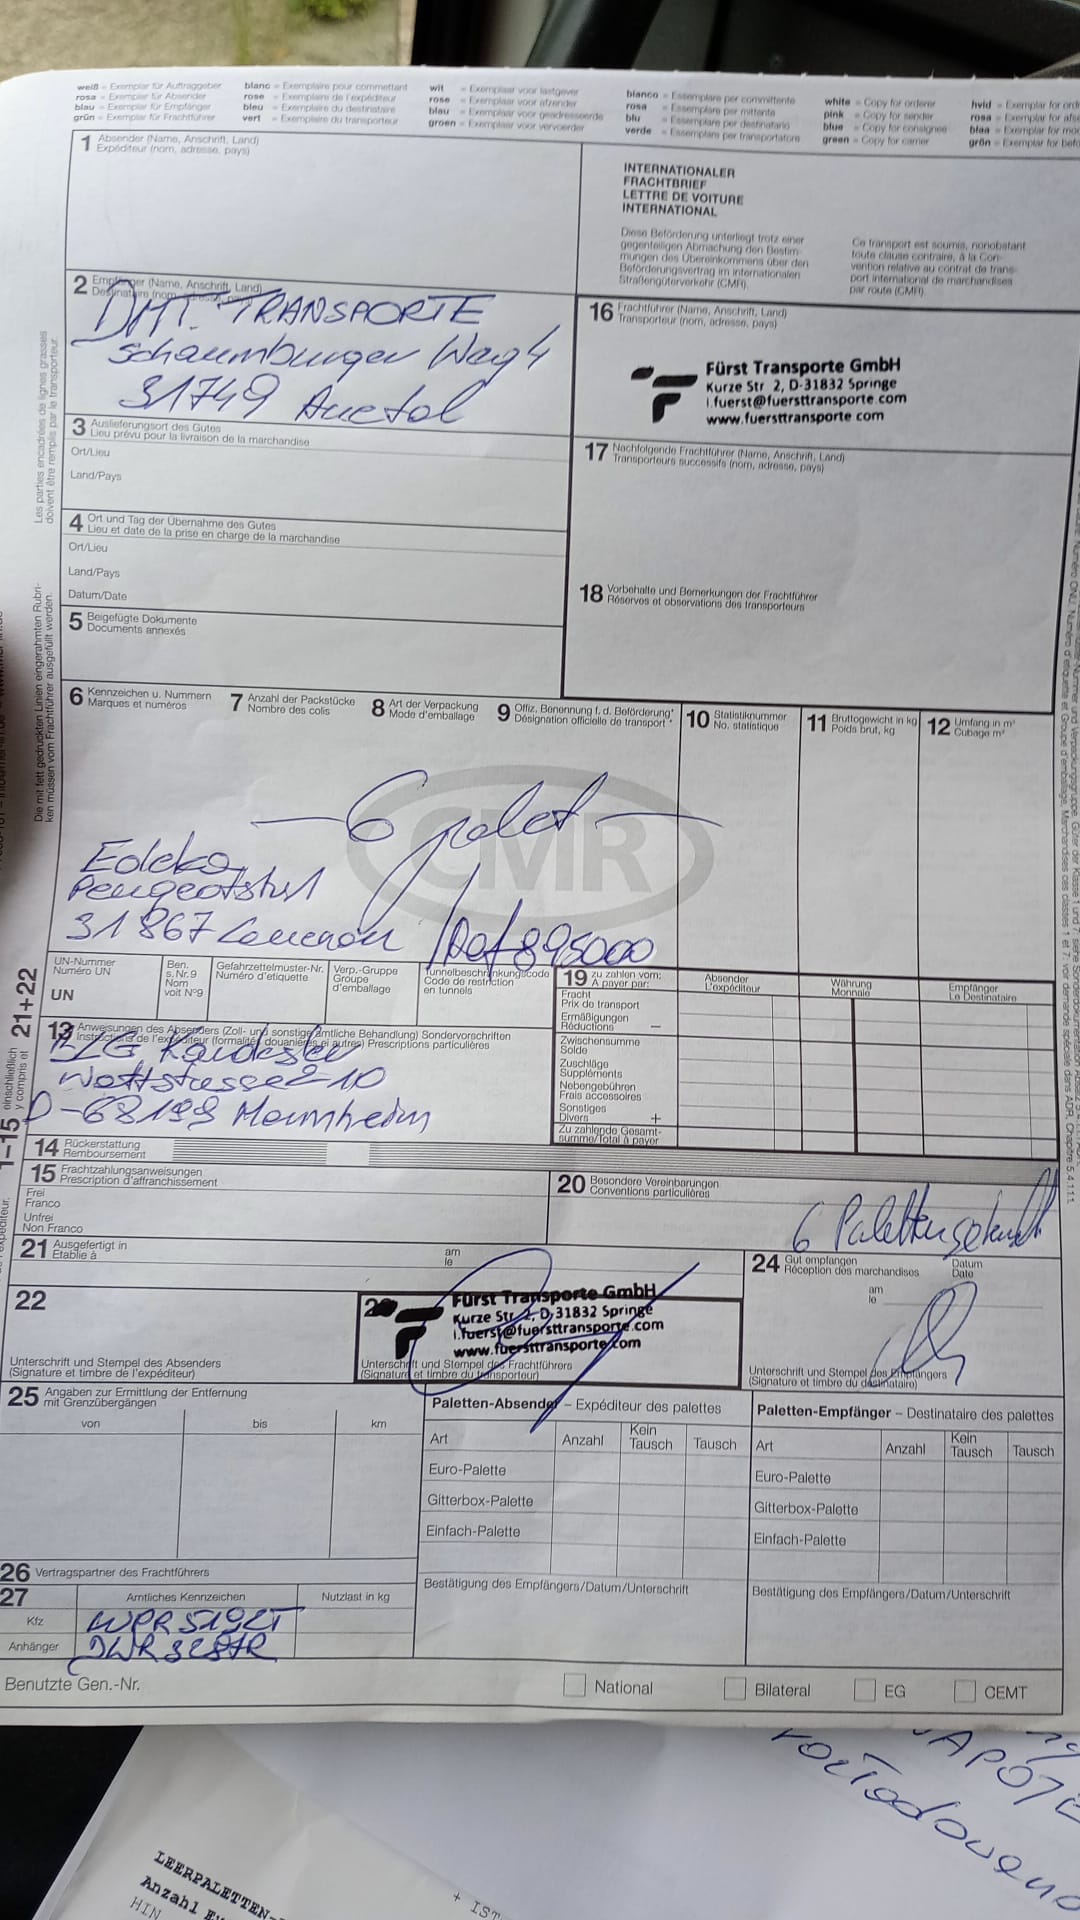 weiß = Exemplar für Auftraggeber
rosa = Exemplar für Absender
blau = Exemplar für Empfänger
grün = Exemplar für Frachtführer
blanc = Exemplaire pour commettant
rose = Exemplaire de l'expéditeur
bleu = Exemplaire du destinataire
vert = Exemplaire du transporteur
wit = Exemplaar voor lastgever
rose = Exemplaar voor afzender
blauw = Exemplaar voor geadresseerde
groen = Exemplaar voor vervoerder
blanco = Essemplare per committente
rosa = Essemplare per mittente
blu = Essemplare per destinatario
verde = Essemplare per trasportatore
white = Copy for orderer
pink = Copy for sender
blue = Copy for consignee
green = Copy for carrier
hvid = Exemplar for
rosa = Exemplar for
blaa = Exemplar for
grön = Exemplar for
1 Absender (Name, Anschrift, Land)
Expéditeur (nom, adresse, pays)
INTERNATIONALER
FRACHTBRIEF
LETTRE DE VOITURE
INTERNATIONAL
Diese Beförderung unterliegt trotz einer
gegenteiligen Abmachung den Bestim-
mungen des Übereinkommens über den
Beförderungsvertrag im internationalen
Straßengüterverkehr (CMR).
Ce transport est soumis, nonobstant
toute clause contraire, à la Con-
vention relative au contrat de trans-
port international de marchandises
par route (CMR)
2 Empfänger (Name, Anschrift, Land)
Destinataire (nom, adresse, pays)
TRANSPORTE
Schaumburger Weg 4
31749 Auetal
16 Frachtführer (Name, Anschrift, Land)
Transporteur (nom, adresse, pays)
Fürst Transporte GmbH
Kurze Str. 2, D-31832 Springe
i.fuerst@fuersttransporte.com
www.fuersttransporte.com
3 Auslieferungsort des Gutes
Lieu prévu pour la livraison de la marchandise
Ort/Lieu
Land/Pays
17 Nachfolgende Frachtführer (Name, Anschrift, Land)
Transporteurs successifs (nom, adresse, pays)
4 Ort und Tag der Übernahme des Gutes
Lieu et date de la prise en charge de la marchandise
Ort/Lieu
Land/Pays
Datum/Date
18 Vorbehalte und Bemerkungen der Frachtführer
Réserves et observations des transporteurs
5 Beigefügte Dokumente
Documents annexés
Les parties encadrées de lignes grasses
doivent être remplis par le transporteur.
Die mit fett gedruckten Linien eingerahmten Rubri-
ken müssen vom Frachtführer ausgefüllt werden.
6 Kennzeichen u. Nummern
Marques et numéros
7 Anzahl der Packstücke
Nombre des colis
8 Art der Verpackung
Mode d'emballage
9 Offiz. Benennung f. d. Beförderung*
Désignation officielle de transport *
10 Statistiknummer
No. statistique
11 Bruttogewicht in kg
Poids brut, kg
12 Umfang in m³
Cubage m³
CMR
6 palet
Edeka
31867 Lauenau
895000
UN-Nummer
Numéro UN
UN
Ben.
s. Nr. 9
Nom
voit N°9
Gefahrzettelmuster-Nr.
Numéro d'etiquette
Verp.-Gruppe
Groupe
d'emballage
Tunnelbeschränkungscode
Code de restriction
en tunnels
19 zu zahlen vom:
A payer par:
Absender
L'expéditeur
Währung
Monnaie
Empfänger
Le Destinataire
Fracht
Prix de transport
Ermäßigungen
Réductions −
Zwischensumme
Solde
Zuschläge
Suppléments
Nebengebühren
Frais accessoires
Sonstiges
Divers +
Zu zahlende Gesamt-
summe/Total à payer
1-15 einschließlich
y compris et 21+22
13 Anweisungen des Absenders (Zoll- und sonstige amtliche Behandlung) Sondervorschriften
Instructions de l'expéditeur (formalités douanières et autres) Prescriptions particulières
D-68199 Mannheim
14 Rückerstattung
Remboursement
15 Frachtzahlungsanweisungen
Prescription d'affranchissement
Frei
Franco
Unfrei
Non Franco
20 Besondere Vereinbarungen
Conventions particulières
6 Paletten getauscht
21 Ausgefertigt in
Etablie à
am
le
24 Gut empfangen
Réception des marchandises
Datum
Date
am
le
22
Unterschrift und Stempel des Absenders
(Signature et timbre de l'expéditeur)
Fürst Transporte GmbH
Kurze Str. 2, D-31832 Springe
i.fuerst@fuersttransporte.com
www.fuersttransporte.com
Unterschrift und Stempel des Frachtführers
(Signature et timbre du transporteur)
Unterschrift und Stempel des Empfängers
(Signature et timbre du destinataire)
25 Angaben zur Ermittlung der Entfernung
mit Grenzübergängen
von bis km
Paletten-Absender – Expéditeur des palettes
Art Anzahl Kein Tausch Tausch
Euro-Palette
Gitterbox-Palette
Einfach-Palette
Bestätigung des Empfängers/Datum/Unterschrift
Paletten-Empfänger – Destinataire des palettes
Art Anzahl Kein Tausch Tausch
Euro-Palette
Gitterbox-Palette
Einfach-Palette
Bestätigung des Empfängers/Datum/Unterschrift
26 Vertragspartner des Frachtführers
27 Amtliches Kennzeichen Nutzlast in kg
Kfz
Anhänger
Benutzte Gen.-Nr.
National Bilateral EG CEMT
LEERPALETTEN-
HIN
+ IST